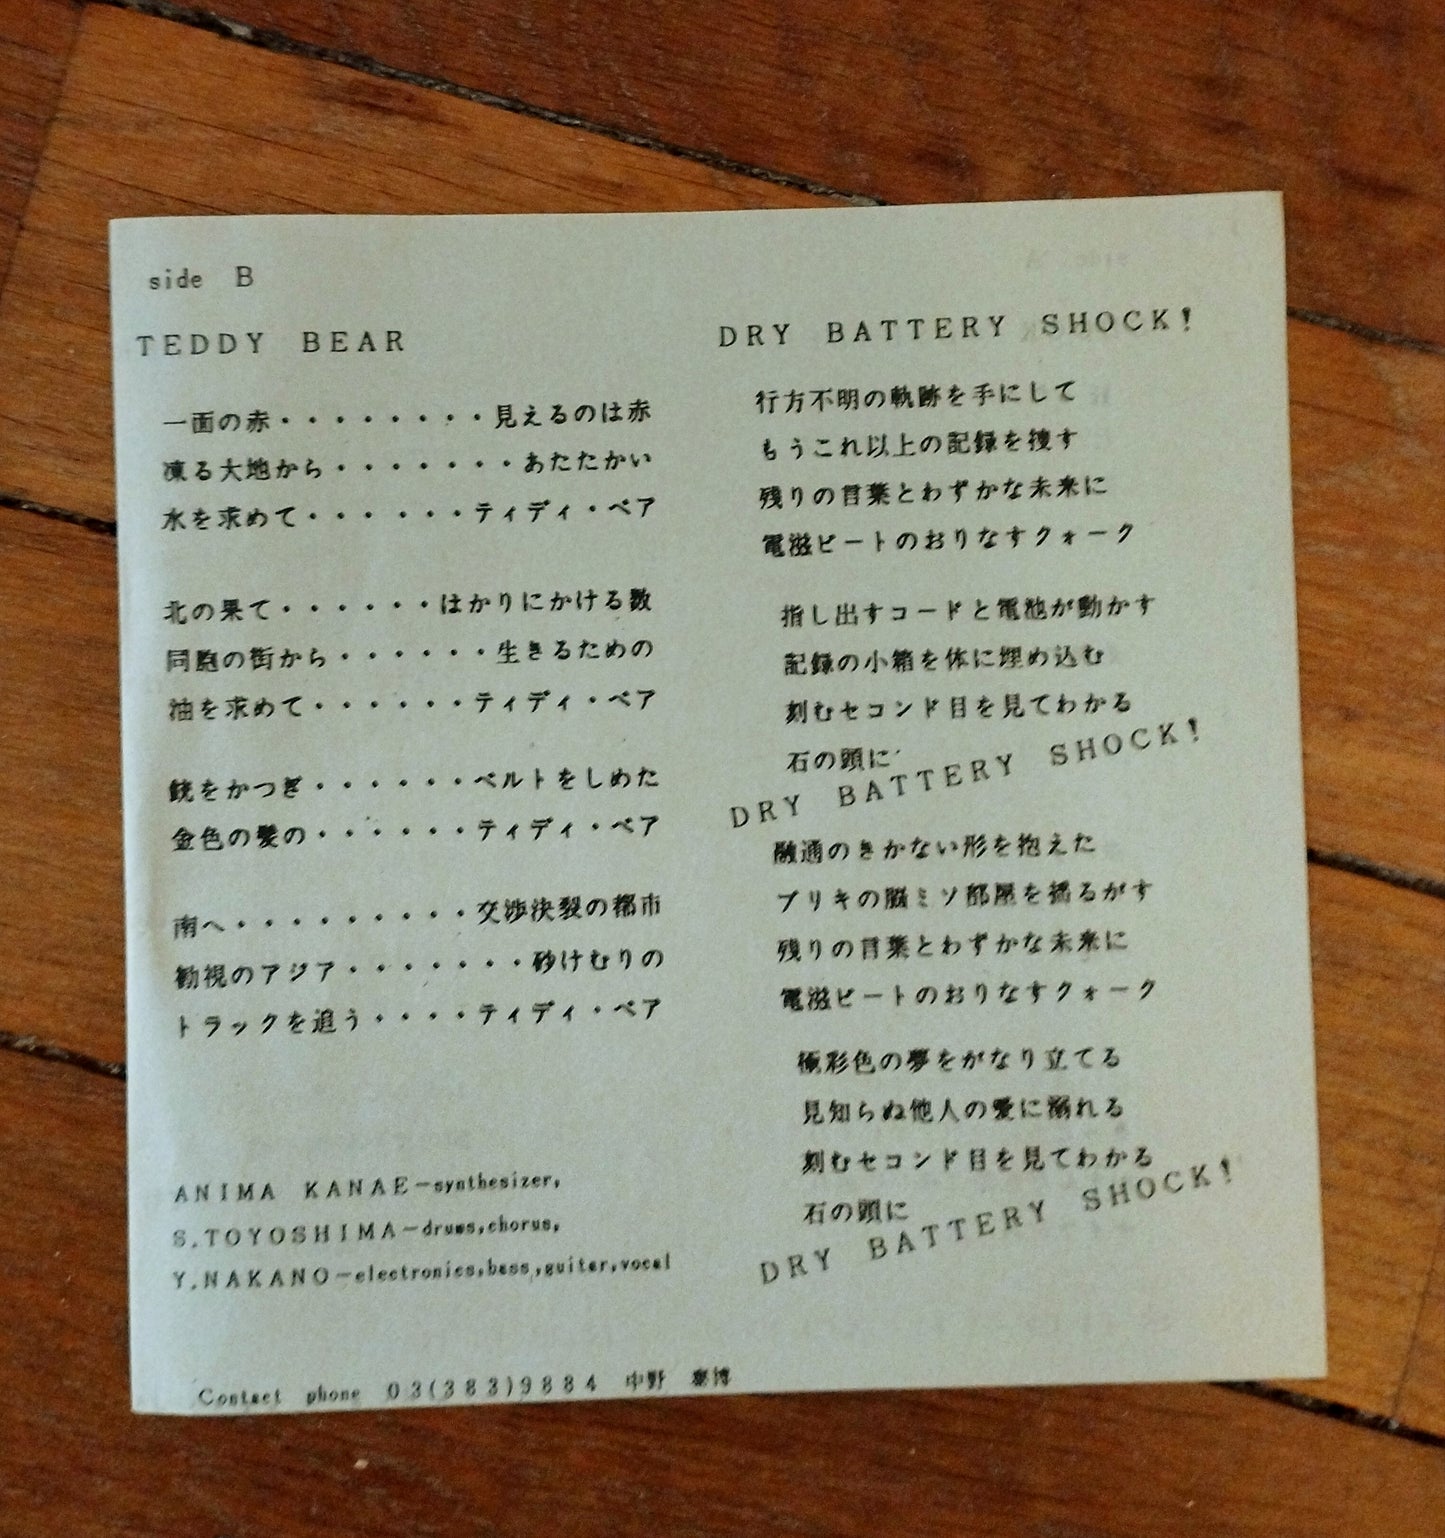 side B
TEDDY BEAR
一面の赤・・・・・・・・見えるのは赤
凍る大地から・・・・・・・あたたかい
水を求めて・・・・・・ティディ・ベア
北の果て・・・・・・はかりにかける数
同胞の街から・・・・・・生きるための
油を求めて・・・・・・ティディ・ベア
銃をかつぎ・・・・・・ベルトをしめた
金色の髪の・・・・・・ティディ・ベア
南へ・・・・・・・・・交渉決裂の都市
勧視のアジア・・・・・・・砂けむりの
トラックを追う・・・・ティディ・ベア
ANIMA KANAE—synthesizer,
S.TOYOSHIMA—drums,chorus,
Y.NAKANO—electronics,bass,guitar,vocal
DRY BATTERY SHOCK!
行方不明の軌跡を手にして
もうこれ以上の記録を捜す
残りの言葉とわずかな未来に
電滋ビートのおりなすクォーク
指し出すコードと電池が動かす
記録の小箱を体に埋め込む
刻むセコンド目を見てわかる
石の頭に
DRY BATTERY SHOCK!
融通のきかない形を抱えた
ブリキの脳ミソ部屋を揺るがす
残りの言葉とわずかな未来に
電滋ビートのおりなすクォーク
極彩色の夢をがなり立てる
見知らぬ他人の愛に溺れる
刻むセコンド目を見てわかる
石の頭に
DRY BATTERY SHOCK!
Contact phone 03(383)9884 中野 博